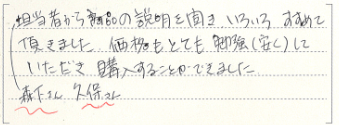 担当者から商品の説明を聞き いろいろ すすめて
頂きました 価格もとても 勉強(安く)して
いただき 購入することができました
森下さん 久保さん